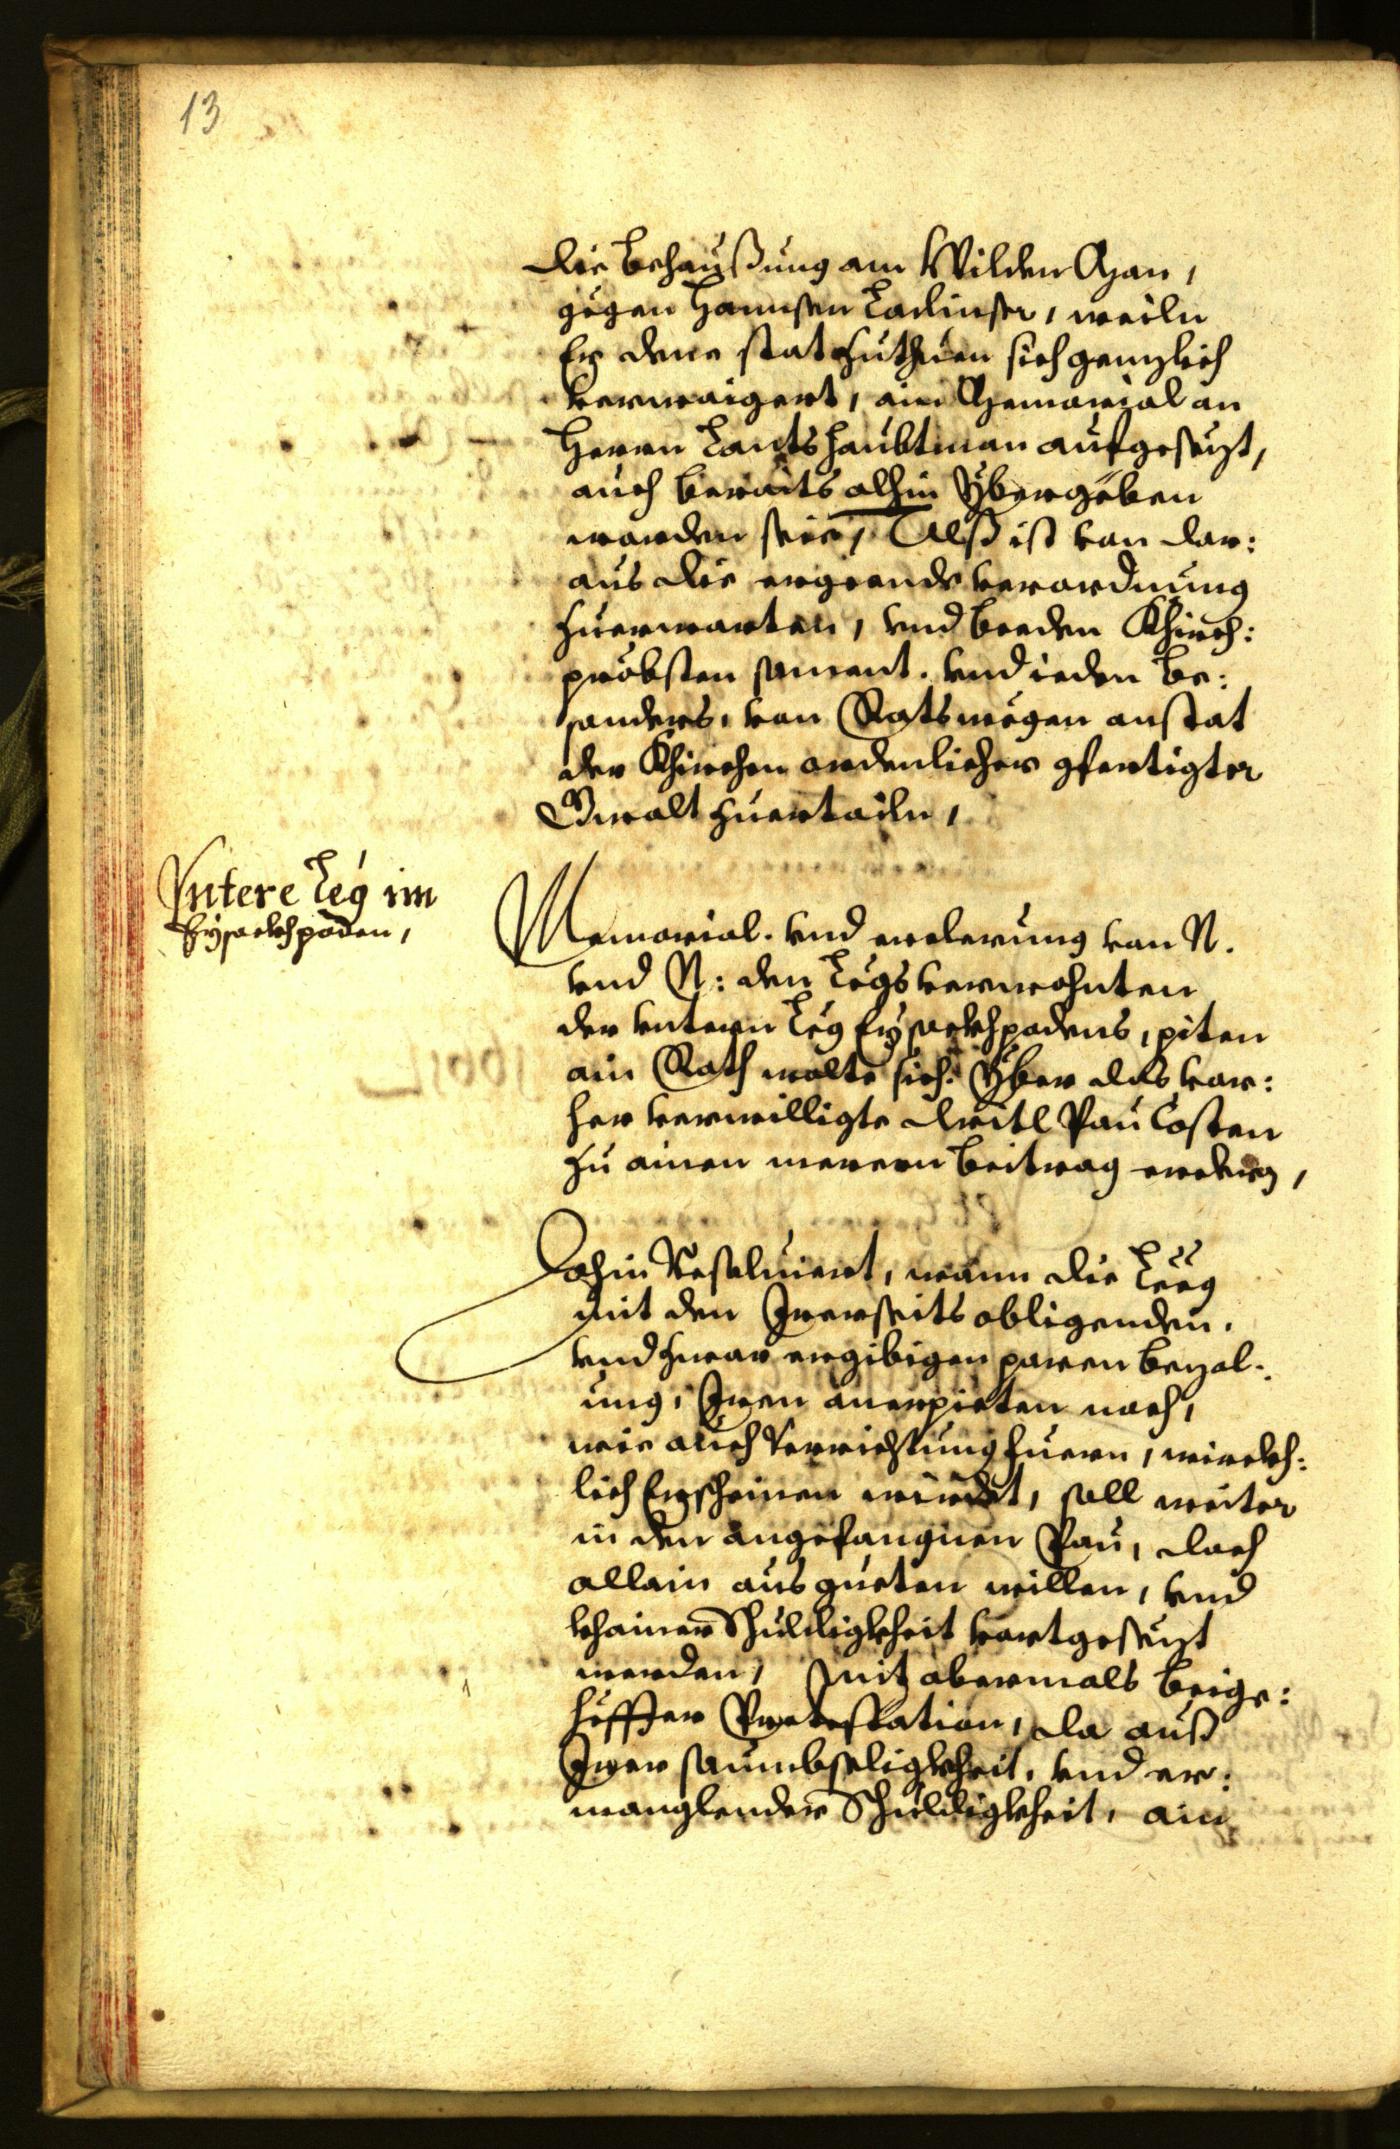 13
die behaußung am Wilden Man,
gegen Hannsen Ladinser, weiln
Er deme stat zuthuen sich genzlich
verwaigert, ain Memorial an
Herrn Landtshaubtman aufgesezt,
auch beraits alhin ÿbergeben
worden seie, Alß ist von dar:
aus die ergeende verordnung
zuerwarten, vnd beeden Khirch:
pröbsten sament. vnd ieden be:
sonders, von Ratswegen anstat
der Khirchen ordenlicher gfertigter
Gwalt zuertailn,
Vntere Leg im
Eysackhpoden,
Memorial. vnd erclerung von N.
vnd N: den Legsverwohnten
der vntern Leg Eysackhpodens, piten
ain Rath wolte sich. ÿber das vor:
her verwilligte dritl Pau Costen
zu ainen merern beitrag
Dahin Resoluiert, wann die Leeg
mit den Irerseits obligenden.
vnd zwar ergibigen paren bezal:
ung, Iren anerpieten nach,
wie auch Verrichtung fuern, würckh:
lich Erscheinen würdet, soll weiter
in den angefangnen Pau, doch
allain aus gueten willen, vnd
khainer Schuldigkheit vortgesezt
werden, mit abermals beige:
heffter Protestation, da auß
Irer saumbseligkheit, vnd er:
manglender Schuldigkheit, ain